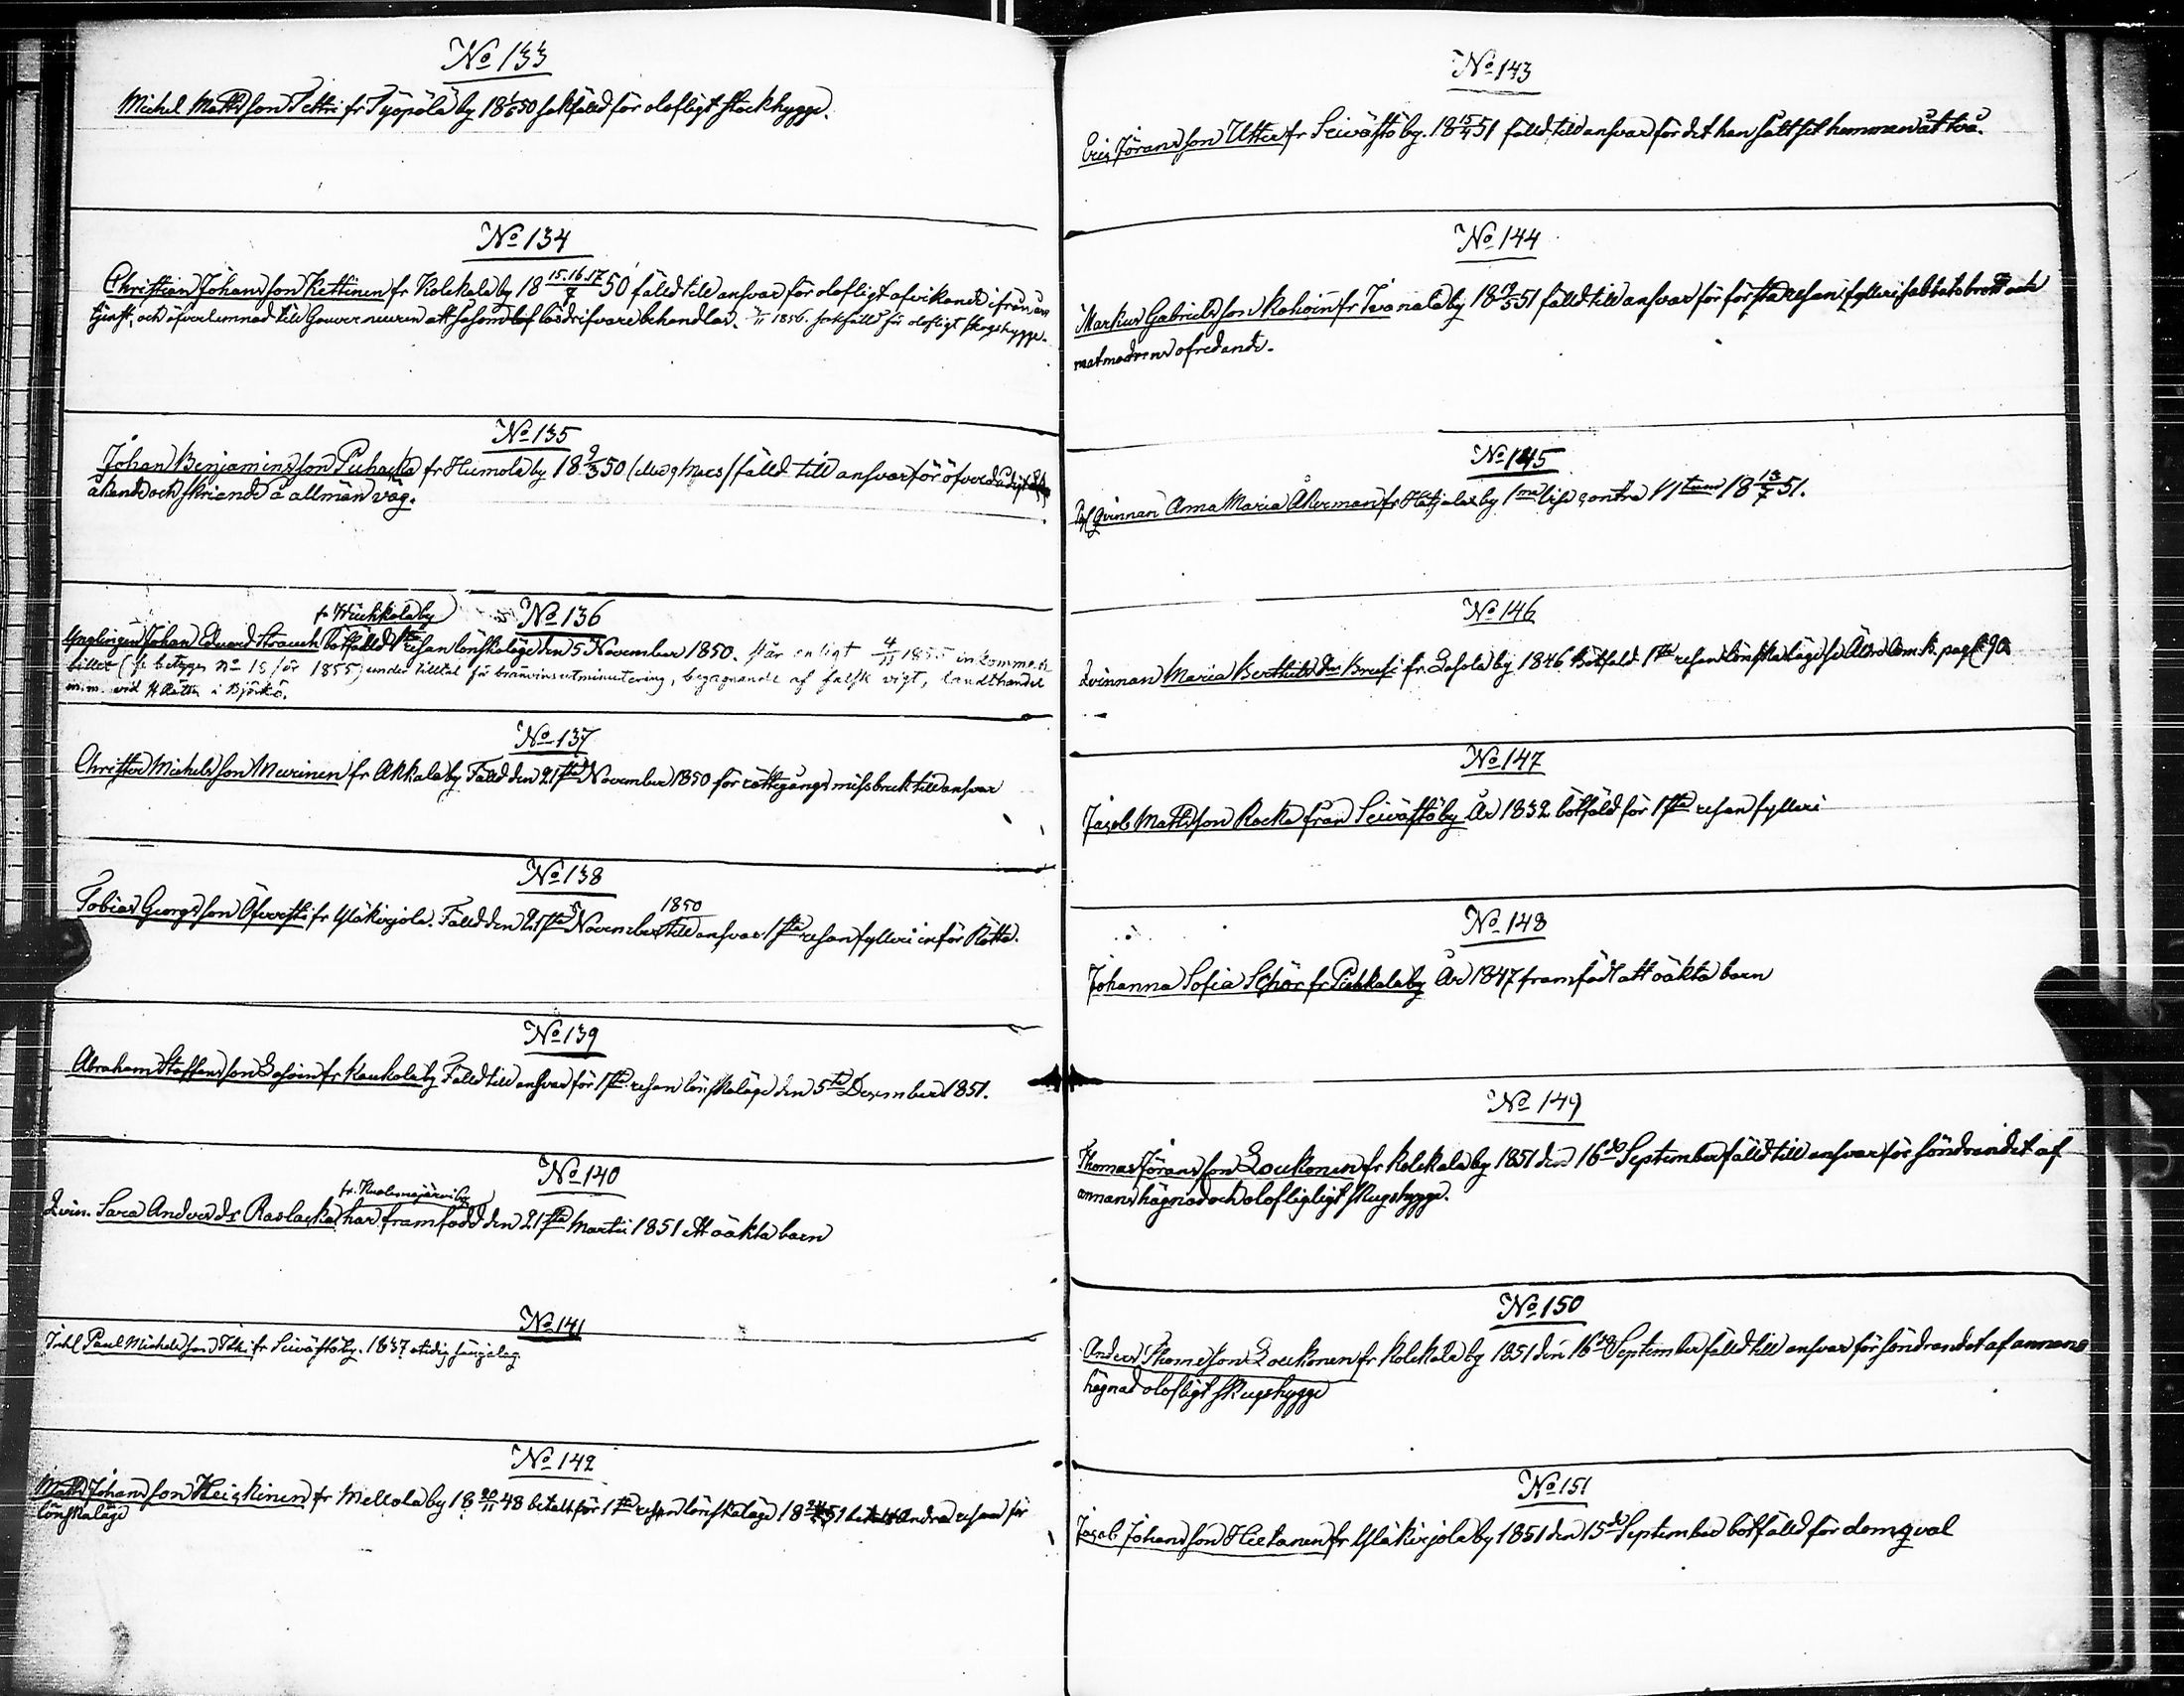 No 133
Michel Matts son Pettri fr Työpölä by 18 1/5 50 sakfälld för olofligt stockhygge.
No 134
Christian Johans son Kettinen fr Kolckala by 18 15.16.17/7 50 fälld till ansvar för olofligt afvikande ifrån
tjenst, och öfverlemnad till Gouverneuren att såsom lösdrifvare behandlas. 1856. sakfälld för olofligt skogshygge.
No 135
Johan Benjamins son Puhacka fr Humola by 18 9/3 50 fälld till ansvar för öfverdådigt
åkande och skriande å allmän väg.
No 136
fr Wuohkola by
Ynglingen Johan Eduard Strauch botfälld 1sta resan lönskaläge den 5 November 1850. Står enligt 4/11 1855 inkommen
billet (se betyges No 18 för 1855) under tilltal för bränvinsutminutering, begagnande af falsk vigt, landthandel
m.m. vid H Rätten i Björkö.
No 137
Christer Michels son Muurinen fr Akkala by Fälld den 21sta November 1850 för rättegångs missbruk till ansvar
No 138
Tobias Georgs son Äfversti fr Yläkirjola. Fälld den 21sta November 1850 till ansvar 1sta resan fylleri inför Rätta.
No 139
Abraham Staffans son Sasoin fr Kaukola by Fälld till ansvar för 1sta resan lönskaläge den 5te December 1851.
No 140
fr. Kuolemajärvi by
Qvin. Sara Anders dr Raslacka har framfödd den 21sta Martii 1851 ett oäkta barn
No 141
Inhl Paul Michels son Ilki fr Seiväströ by. 1837 otidig sängelag
No 142
Matts Johans son Heickinen fr Mellola by 18 20/11 48 betalt för 1sta resan lönskaläge 18 51 betalt Andra resan för
lönskaläge
No 143
Eric Jörans son Utter fr Seiväströ by. 18 15/4 51 fälld till ansvar för det han sålt sit hemman åt två.
No 144
Markus Gabriels son Kohoin fr Ivanala by 18 19/5 51 fälld till ansvar för första resan fylleri sabbatsbrott och
matmodrens ofredande.
No 145
Qvinnan Anna Maria Åkerman fr Hatjalax by 18 13/7 51.
No 146
Qvinnan Maria Berthils dr Kruusi fr Sasola by 1846 Botfäld 1sta resan lönskaläge se Äldre Am.k. pag 90
No 147
Jacob Matts son Rocka från Seiväströ by År 1832 botfäld för 1sta resan fylleri
No 148
Johanna Sofia Schör fr Pihkala by År 1847 framfödt ett oäkta barn
No 149
Thomas Jörans son Loukonen fr Kolckala by 1851 den 16de September fälld till ansvar för söndrandet af
annans hägnad och olofligligt skogshygge.
No 150
Anders Thome son Loukonen fr Kolckala by 1851 den 16de September fälld till ansvar för söndrandet af annans
hägnad olofligt skogshygge
No 151
Jacob Johans son Hietanen fr Yläkirjola by 1851 den 15de September botfälld för domqval